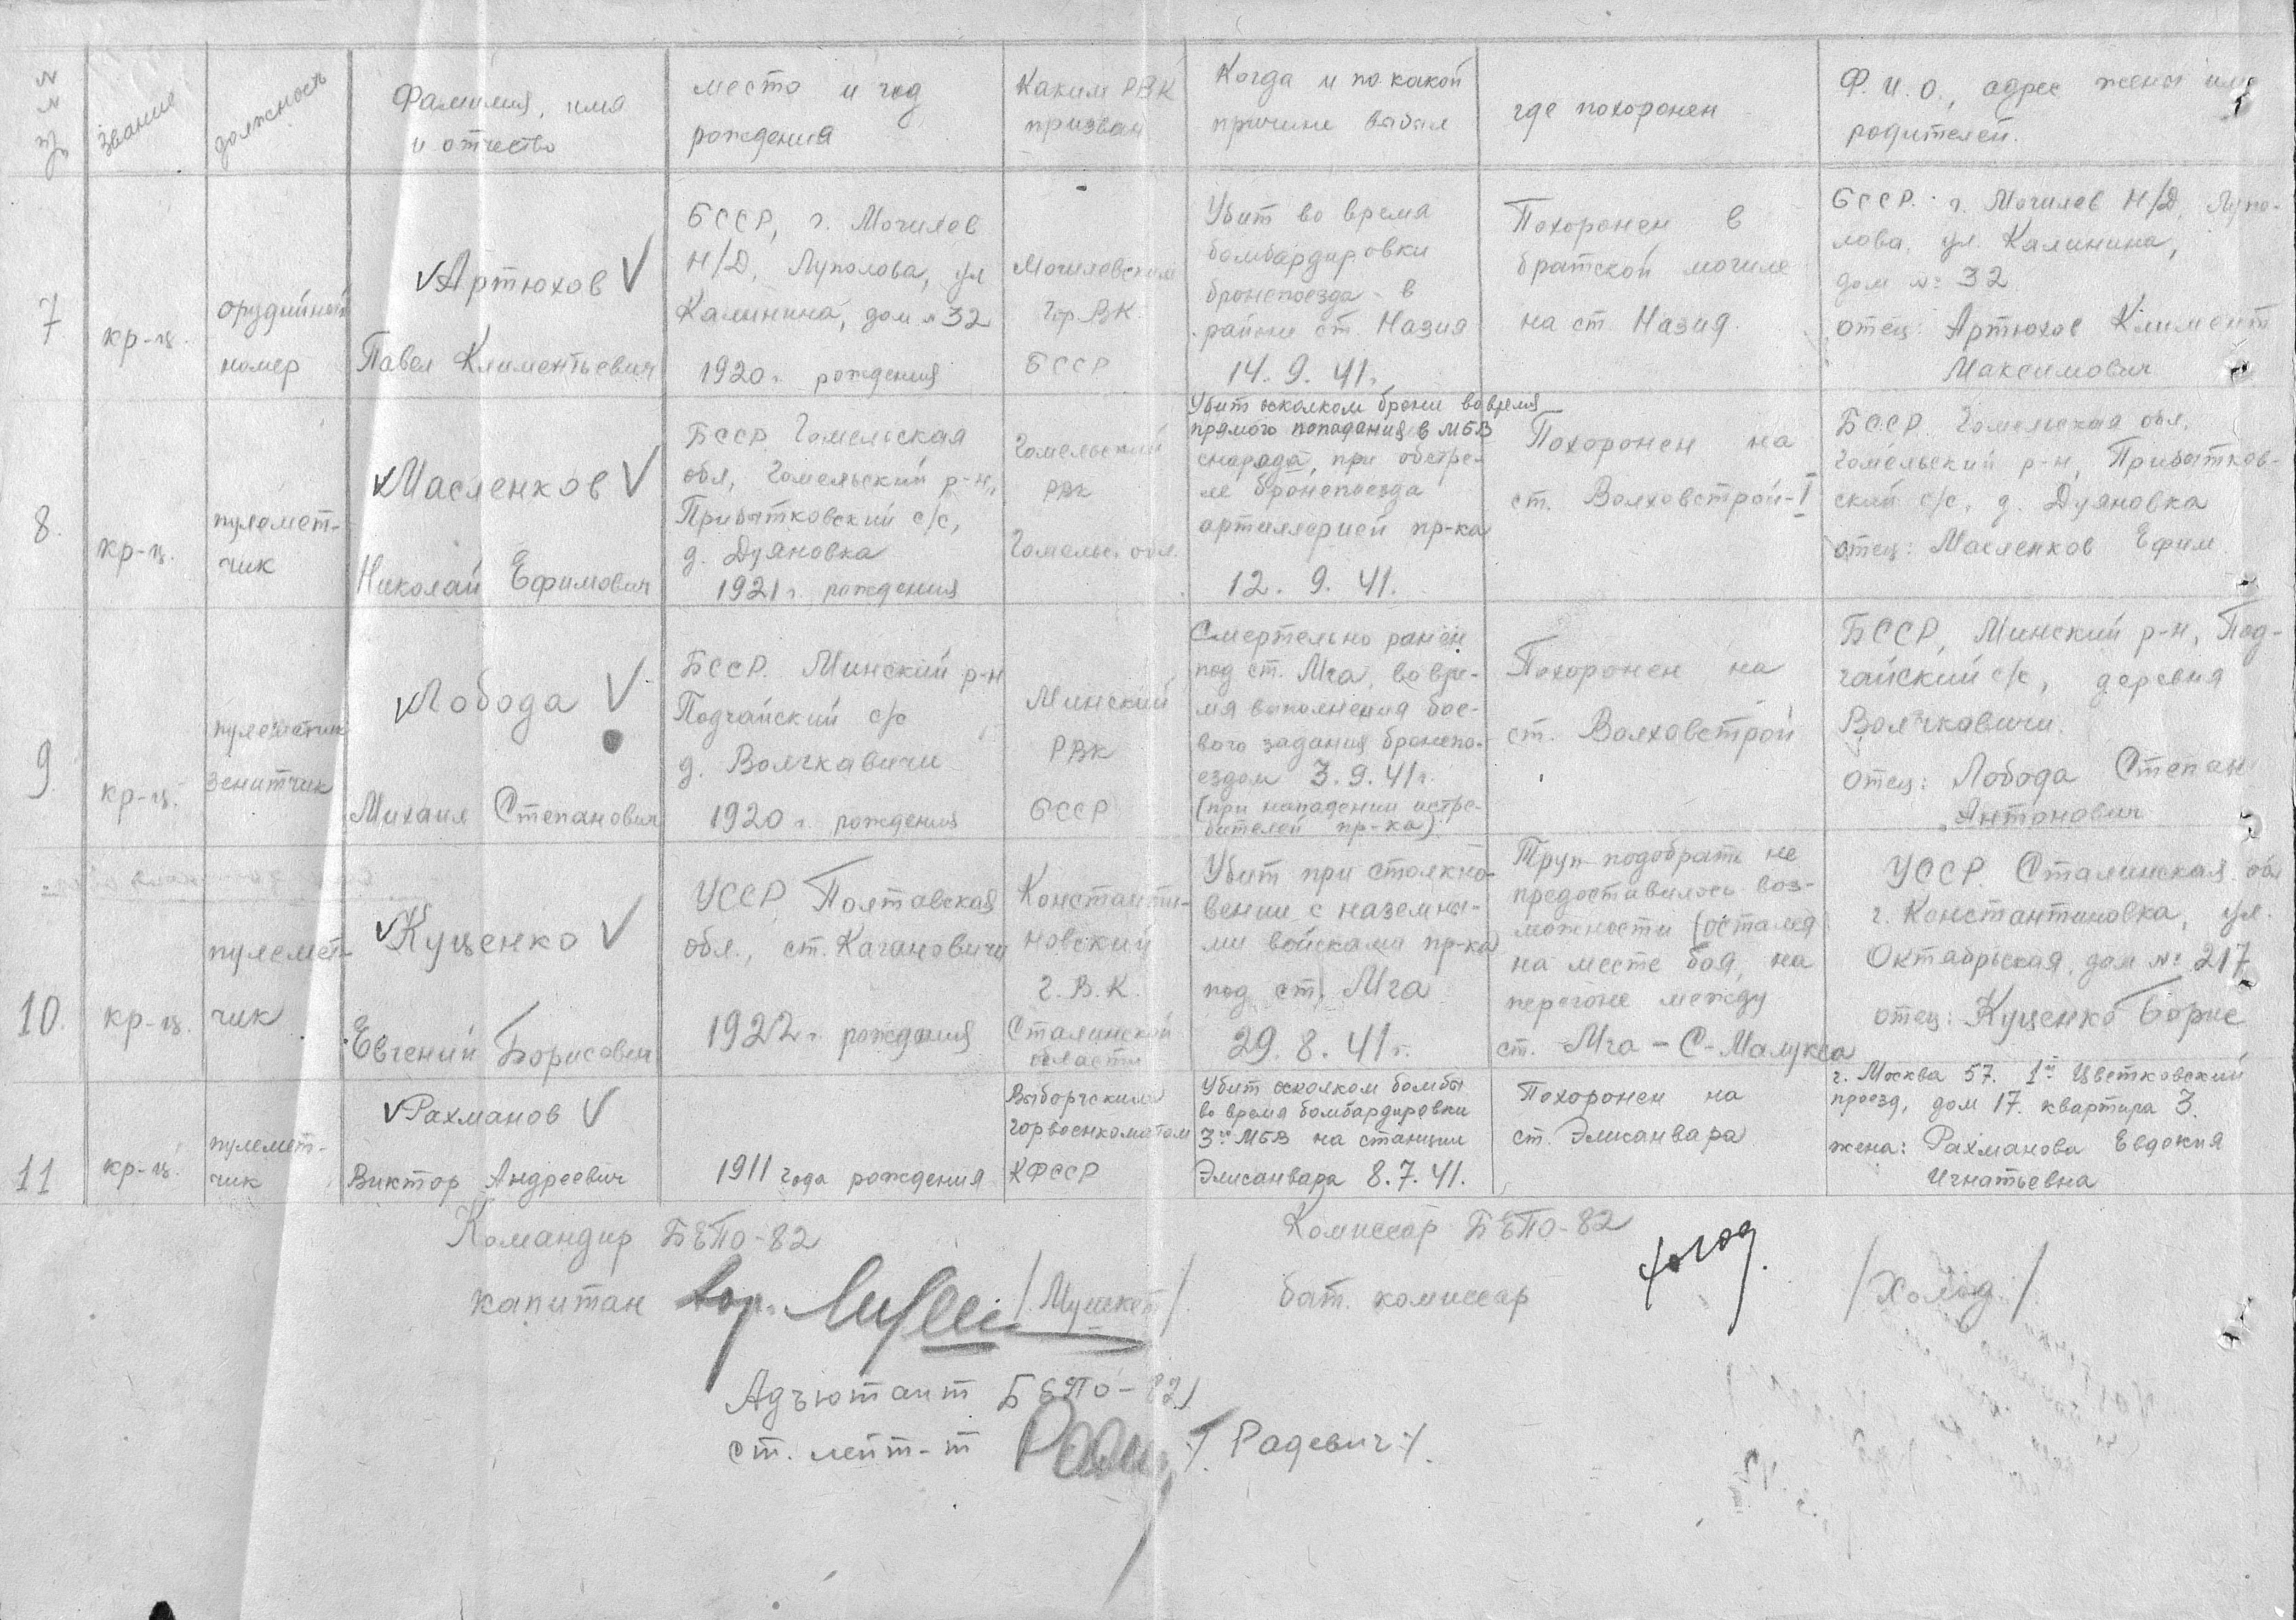 NN пп
Звание
должность
Фамилия, имя
и отчество
место и год
рождения
Каким РВК
призван
Когда и по какой
причине выбыл
где похоронен
Ф.И.О., адрес жены или
родителей.
7
кр-ц.
орудийный
номер
Артюхов
Павел Климентьевич
БССР, г. Могилев
Н/Д, Луполова, ул
Калинина, дом №32
1920 г. рождения
Могилевским
Гор.ВК.
БССР
Убит во время
бомбардировки
бронепоезда в
районе ст. Назия
14.9.41г.
Похоронен в
братской могиле
на ст. Назия.
БССР. г. Могилев Н/Д, Лупо-
лова, ул. Калинина,
дом № 32
отец: Артюхов Климент
Максимович
8.
кр-ц.
пулемет-
чик
Масленков
Николай Ефимович
БССР Гомельская
обл, Гомельский р-н,
Прибытковский с/с,
д. Дуяновка
1921 г. рождения
Гомельский
РВК
Гомельс. обл.
Убит осколком брони во время
прямого попадания в МБВ
снаряда, при обстре-
ле бронепоезда
артиллерией пр-ка
12. 9. 41.
Похоронен на
ст. Волховстрой-I
БССР. Гомельская обл,
Гомельский р-н, Прибытков-
ский с/с, д. Дуяновка
отец: Масленков Ефим.
9.
кр-ц.
пулеметчик
зенитчик
Лобода
Михаил Степанович
БССР. Минский р-н
Подгайский с/с
д. Волчкавичи
1920 г. рождения
Минский
РВК
БССР
Смертельно ранен
под ст. Мга, во вре-
мя выполнения бое-
вого задания бронепо-
ездом 3.9.41г.
(при нападении истре-
бителей пр-ка)
Похоронен на
ст. Волховстрой
БССР, Минский р-н, Под-
гайский с/с, деревня
Волчкавичи.
отец: Лобода Степан
Антонович
10.
кр-ц.
пулемет-
чик
Куценко
Евгений Борисович
УССР, Полтавская
обл., ст. Кагановичи
1922 г. рождения
Константи-
новский
г.В.К.
Сталинской
области
Убит при столкно-
вении с наземны-
ми войсками пр-ка
под ст. Мга
29.8.41г.
Труп подобрать не
предоставилось воз-
можности (остался
на месте боя, на
перегоне между
ст. Мга - С-Малукса
УССР. Сталинская обл
г. Константиновка, ул.
Октябрьская, дом № 217
отец: Куценко Борис
11
кр-ц.
пулемет-
чик
Рахманов
Виктор Андреевич
1911 года рождения
Выборгским
горвоенкоматом
КФССР
Убит осколком бомбы
во время бомбардировки
3й МБВ на станции
Элисанвара 8.7.41.
Похоронен на
ст. Элисанвара
г. Москва 57. 1й Цветковский
проезд, дом 17. квартира 3.
жена: Рахманова Евдокия
Игнатьевна
Командир БЕПО-82
капитан /Мушкет/
Комиссар БЕПО-82
бат. комиссар Холод. /Холод/
Адъютант БЕПО-82
ст. лейт-т /Радевич/.